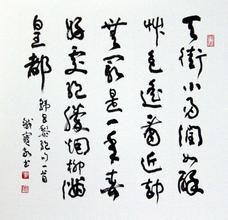 天街小雨潤如酥
艸色遙看近却
無最是一年春
好處絕勝烟柳滿
皇都
韓愈絕句一首
書